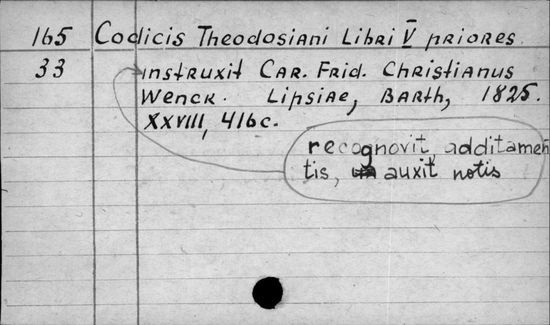 165 Codicis Theodosiani Libri V priores
33 instruxit Car. Frid. Christianus
Wenck. Lipsiae, Barth, 1825.
XXVIII, 416c.
recognovit, additamen
tis, auxit notis